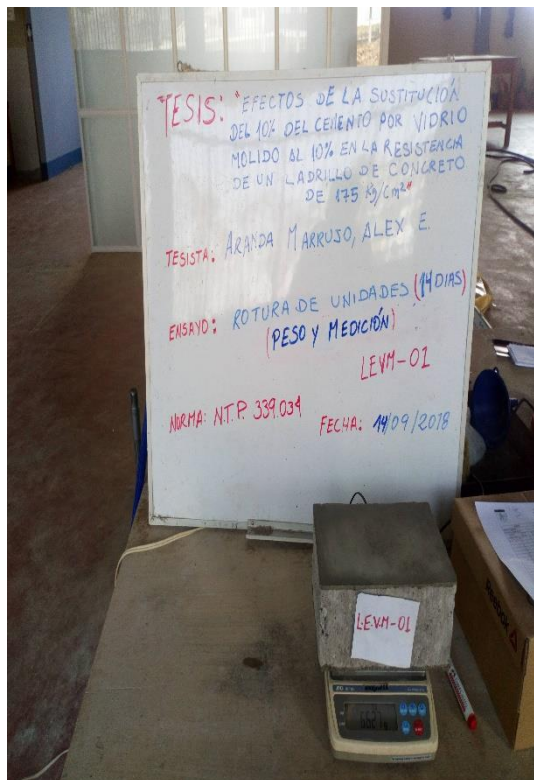 TESIS: "EFECTOS DE LA SUSTITUCIÓN
DEL 10% DEL CEMENTO POR VIDRIO
MOLIDO AL 10% EN LA RESISTENCIA
DE UN LADRILLO DE CONCRETO
DE 175 Kg/Cm²"
TESISTA: ARANDA MARRUJO, ALEX E.
ENSAYO: ROTURA DE UNIDADES (14 DIAS)
(PESO Y MEDICIÓN)
LEVM-01
NORMA: N.T.P. 339.034 FECHA: 14/09/2018
L.E.V.M-01